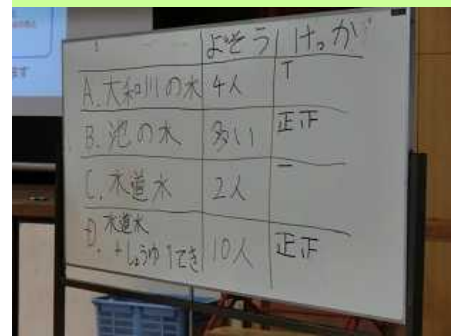 よそう けっか
A. 大和川の水 4人 T
B. 池の水 多い 正下
C. 水道水 2人 一
D. 水道水
+しょうゆ1てき 10人 正下